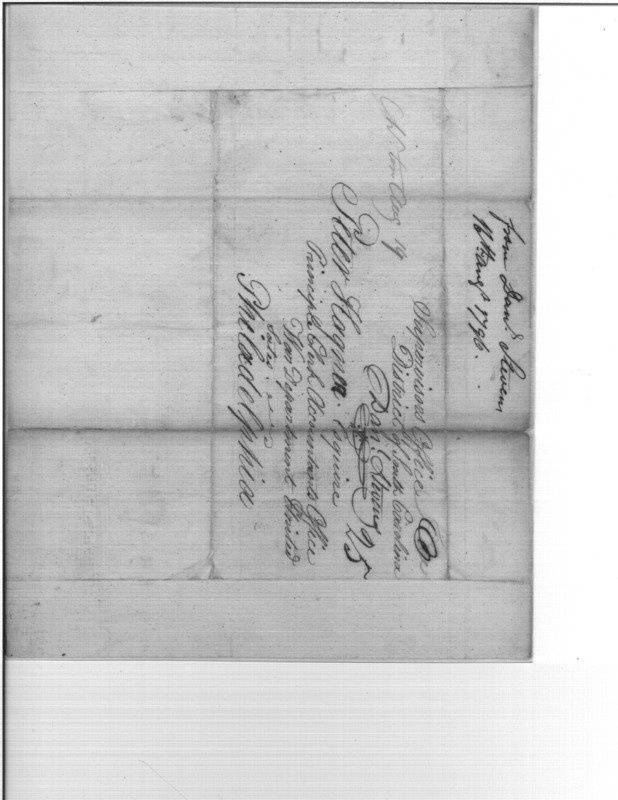 from Danl Stevens
16th augt 1796.
Supervisors Office
District of South Carolina
Danl Stevens
25
Ch'ton Aug 19
Peter Hagner Esquire
Principle Clerk Accountants Office
War Department United
States
Philadelphia